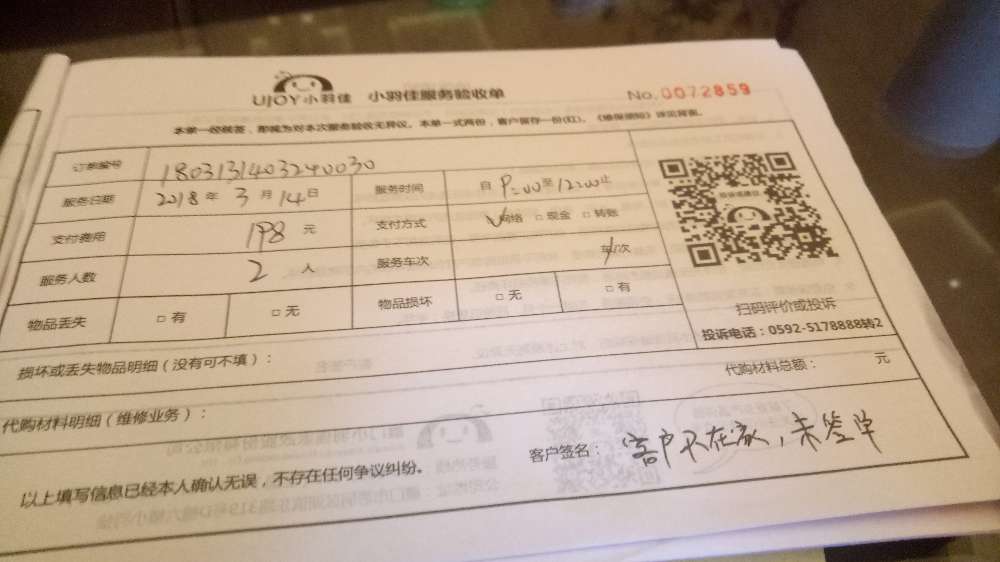 UJOY小羽佳 小羽佳服务验收单 No.0072859
本单一经核签，即视为对本次服务验收无异议。本单一式两份，客户留存一份(红)。《维保须知》详见背面。
订单编号 1803131403240030
服务日期 2018年3月14日 服务时间 自 P=00至12=00止
支付费用 198元 支付方式 网络 □ 现金 □ 转账
服务人数 2人 服务车次 车/次
物品丢失 □ 有 □ 无 物品损坏 □ 无 □ 有
扫码评价或投诉
投诉电话：0592-5178888转2
损坏或丢失物品明细（没有可不填）：
代购材料明细（维修业务）： 代购材料总额： 元
以上填写信息已经本人确认无误，不存在任何争议纠纷。 客户签名： 客户不在家，未签单